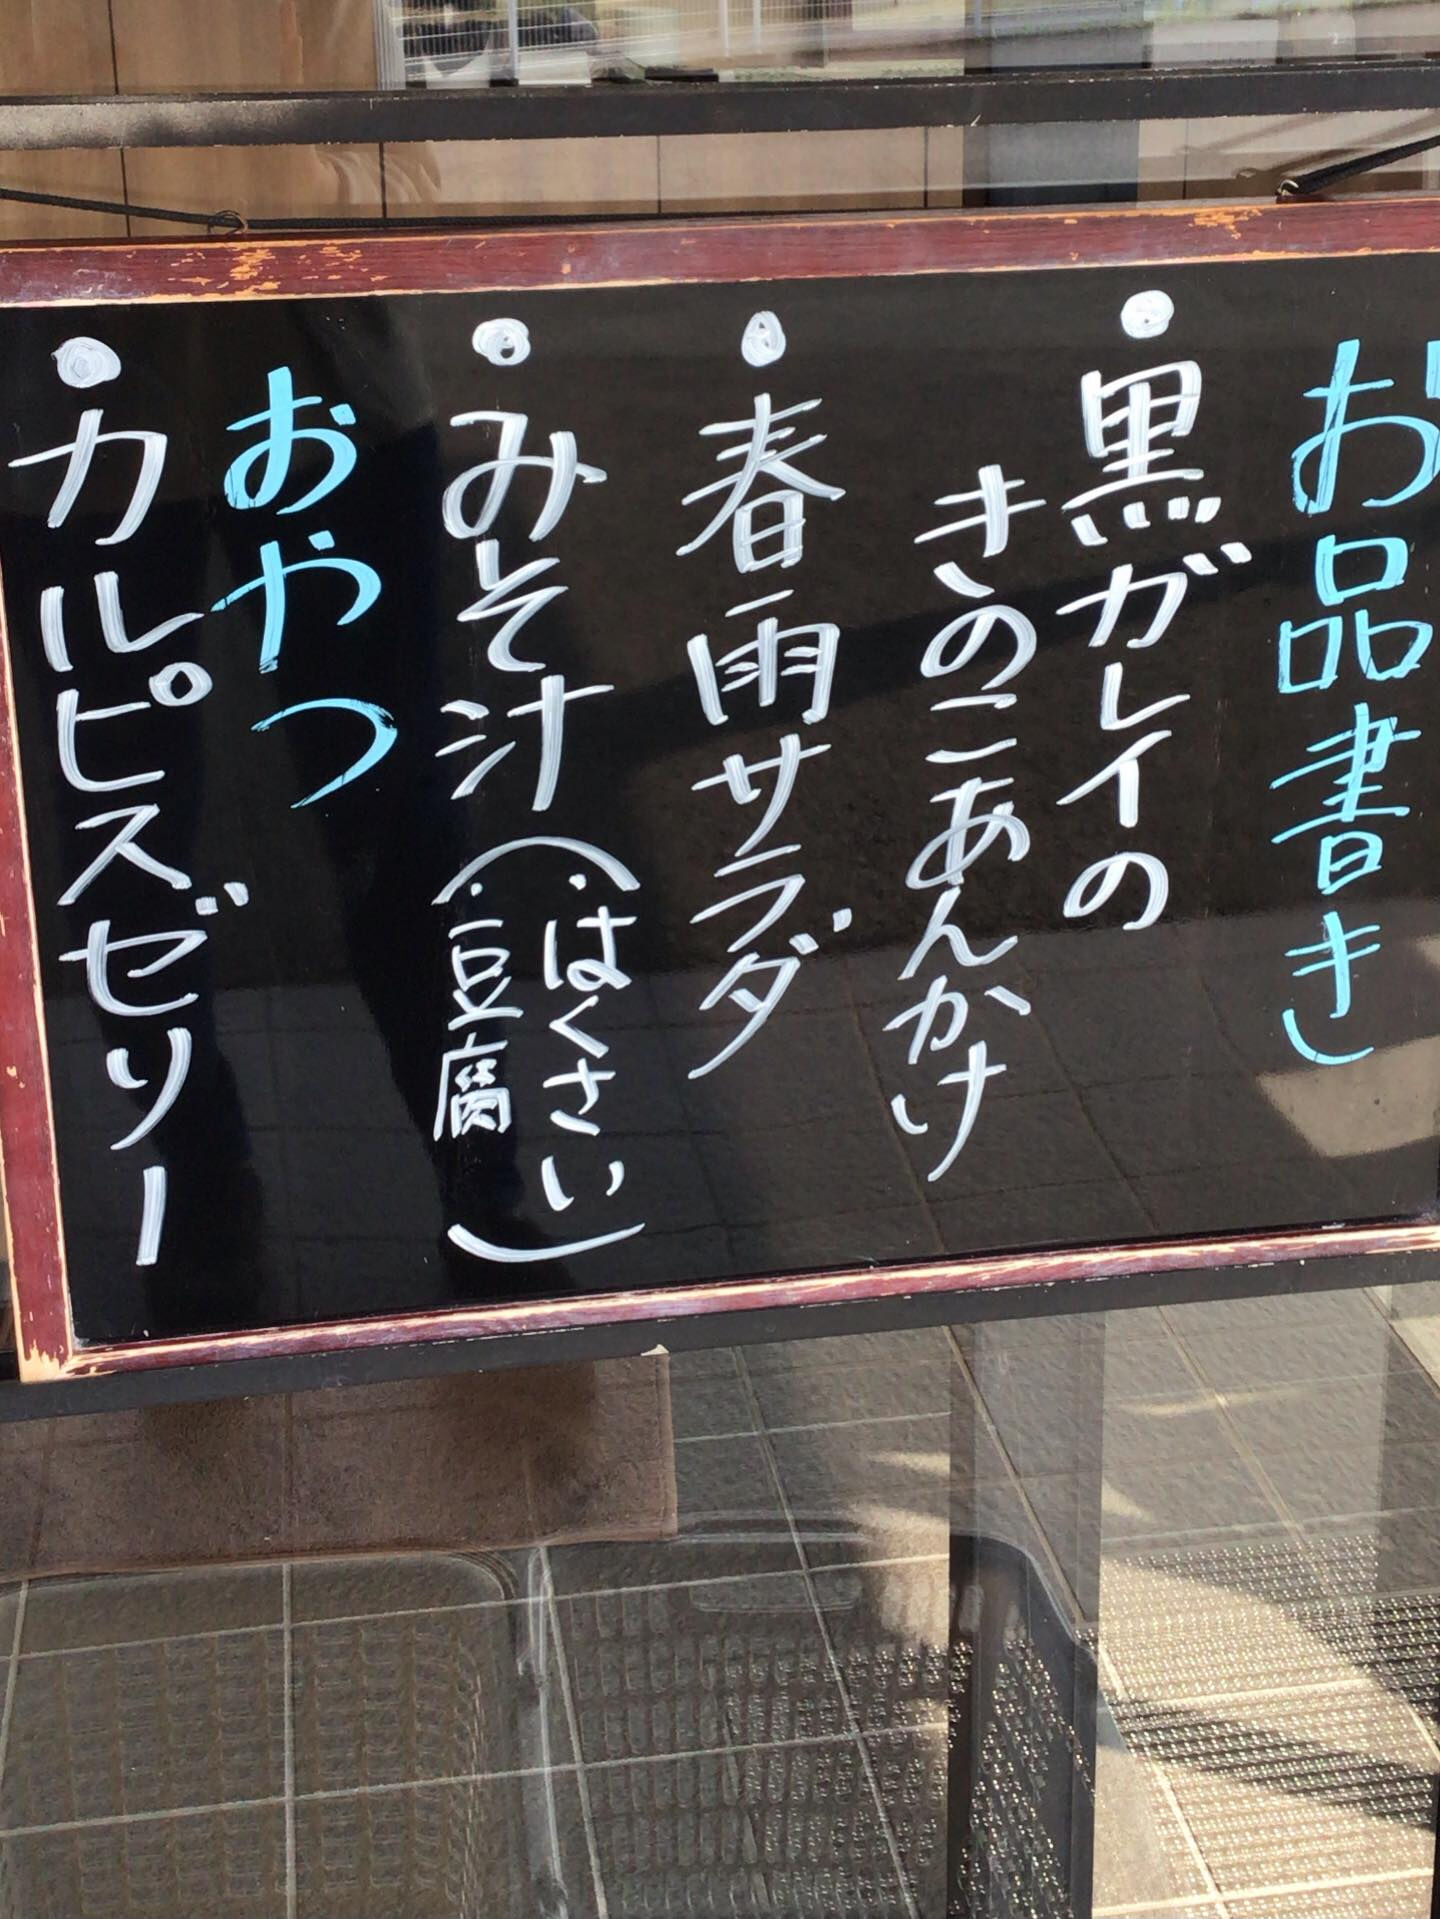 お品書き
・黒ガレイの
きのこあんかけ
・春雨サラダ
・みそ汁(・はくさい
・豆腐)
おやつ
・カルピスゼリー